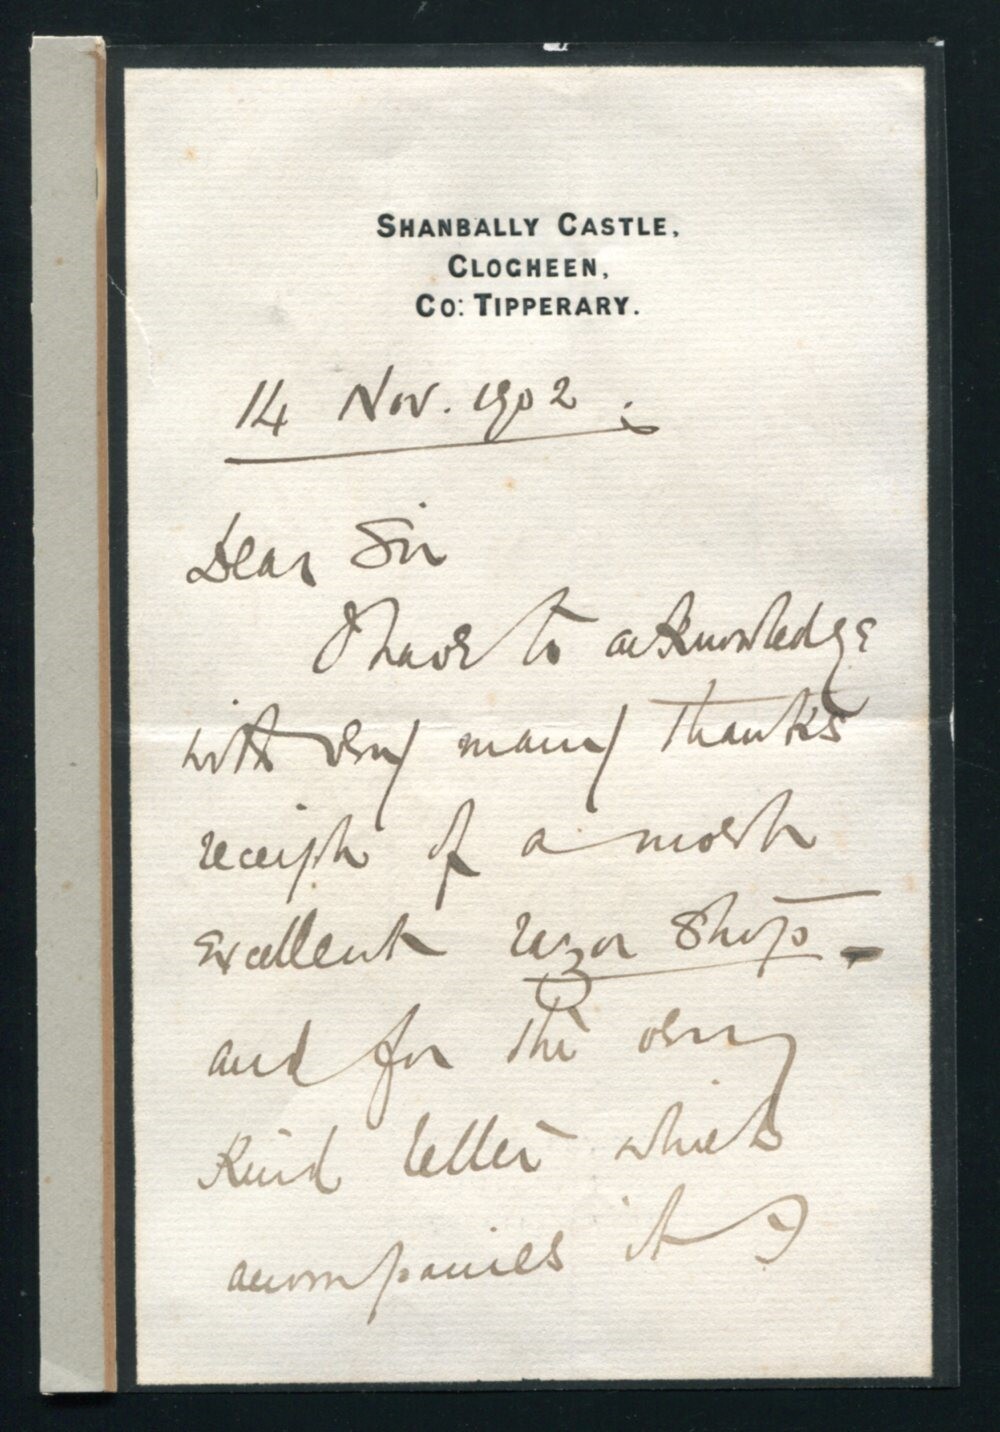 SHANBALLY CASTLE,
CLOGHEEN,
CO: TIPPERARY.
14 Nov. 1902.
Dear Sir
I have to acknowledge
with very many thanks
receipt of a most
excellent razor Strop -
and for the very
kind letter which
accompanies it I